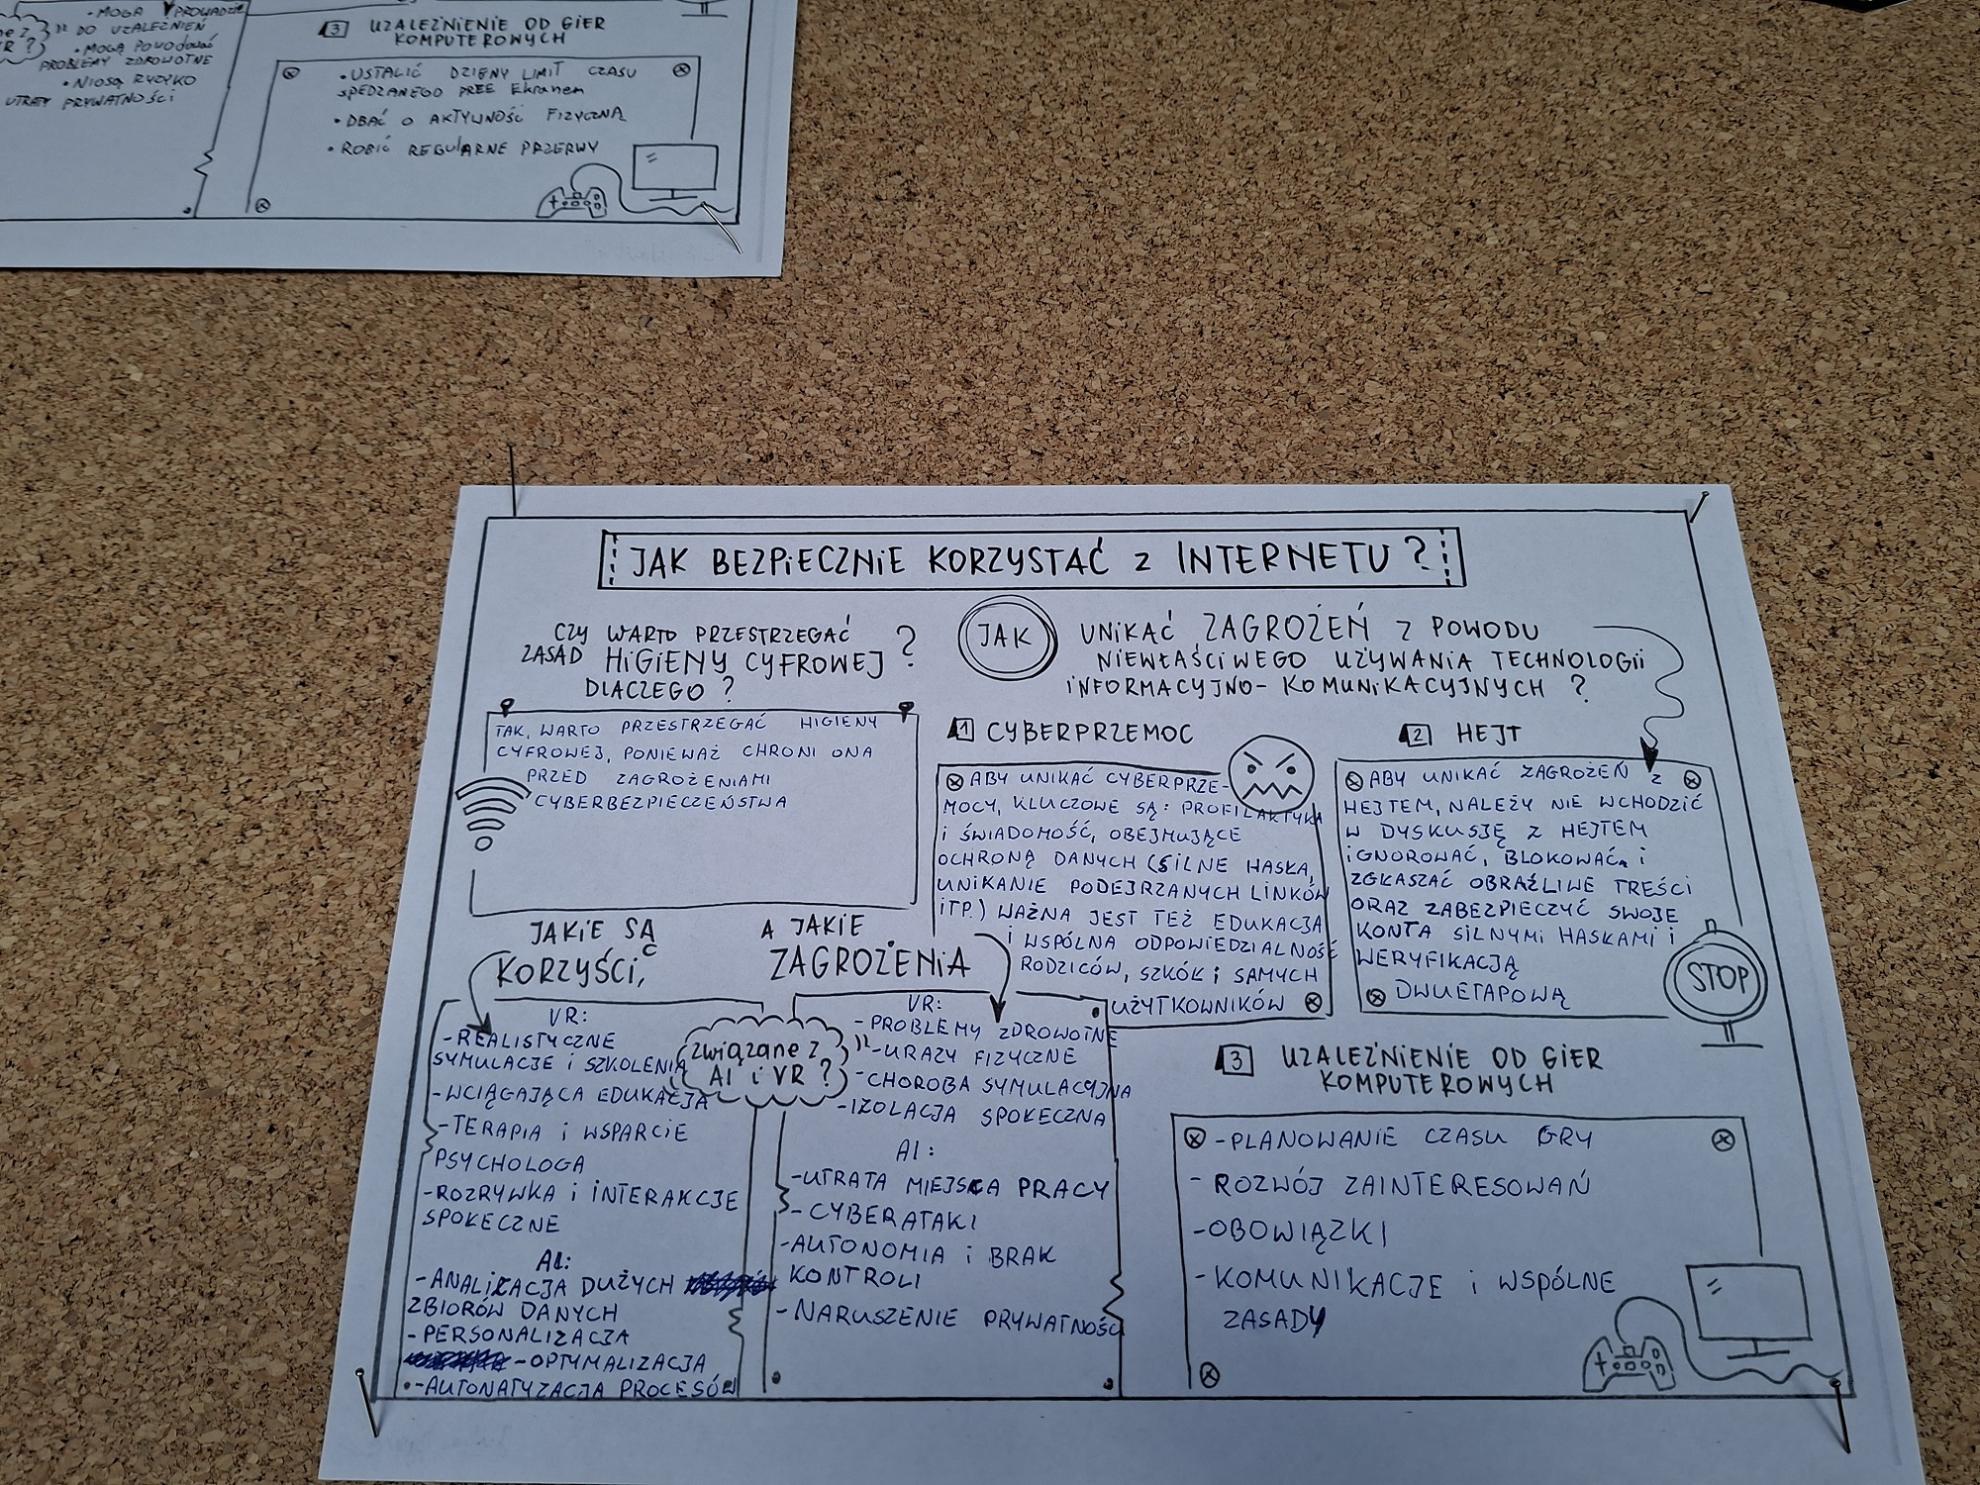 • MOGĄ PROWADZIĆ
DO UZALEŻNIEŃ
• MOGĄ POWODOWAĆ
PROBLEMY ZDROWOTNE
• NIOSĄ RYZYKO
UTRATY PRYWATNOŚCI
3 UZALEŻNIENIE OD GIER
KOMPUTEROWYCH
• USTALIĆ DZIENY LIMIT CZASU
SPĘDZANEGO PRZE Ekranem
• DBAĆ O AKTYWNOŚĆ FIZYCZNĄ
• ROBIĆ REGULARNE PRZERWY
JAK BEZPIECZNIE KORZYSTAĆ Z INTERNETU?
CZY WARTO PRZESTRZEGAĆ
ZASAD HIGIENY CYFROWEJ?
DLACZEGO?
TAK, WARTO PRZESTRZEGAĆ HIGIENY
CYFROWEJ, PONIEWAŻ CHRONI ONA
PRZED ZAGROŻENIAMI
CYBERBEZPIECZEŃSTWA
JAK UNIKAĆ ZAGROŻEŃ Z POWODU
NIEWŁAŚCIWEGO UŻYWANIA TECHNOLOGII
INFORMACYJNO-KOMUNIKACYJNYCH?
1 CYBERPRZEMOC
ABY UNIKAĆ CYBERPRZE-
MOCY, KLUCZOWE SĄ: PROFILAKTYKA
I ŚWIADOMOŚĆ, OBEJMUJĄCE
OCHRONĄ DANYCH (SILNE HASŁA,
UNIKANIE PODEJRZANYCH LINKÓW
ITP.) WAŻNA JEST TEŻ EDUKACJA
I WSPÓLNA ODPOWIEDZIALNOŚĆ
RODZICÓW, SZKÓŁ I SAMYCH
UŻYTKOWNIKÓW
2 HEJT
ABY UNIKAĆ ZAGROŻEŃ Z
HEJTEM, NALEŻY NIE WCHODZIĆ
W DYSKUSJĘ Z HEJTEM
IGNOROWAĆ, BLOKOWAĆ I
ZGŁASZAĆ OBRAŹLIWE TREŚCI
ORAZ ZABEZPIECZYĆ SWOJE
KONTA SILNYMI HASŁAMI I
WERYFIKACJĄ
DWUETAPOWĄ
STOP
JAKIE SĄ
KORZYŚCI,
A JAKIE
ZAGROŻENIA
związane z
AI i VR?
VR:
-REALISTYCZNE
SYMULACJE I SZKOLENIA
-WCIĄGAJĄCA EDUKACJA
-TERAPIA I WSPARCIE
PSYCHOLOGA
-ROZRYWKA I INTERAKCJE
SPOŁECZNE
AI:
-ANALIZACJA DUŻYCH
ZBIORÓW DANYCH
-PERSONALIZACJA
-OPTYMALIZACJA
-AUTONATYZACJA PROCESÓW
VR:
-PROBLEMY ZDROWOTNE
-URAZY FIZYCZNE
-CHOROBA SYMULACYJNA
-IZOLACJA SPOŁECZNA
AI:
-UTRATA MIEJSCA PRACY
-CYBERATAKI
-AUTONOMIA I BRAK
KONTROLI
-NARUSZENIE PRYWATNOŚCI
3 UZALEŻNIENIE OD GIER
KOMPUTEROWYCH
-PLANOWANIE CZASU GRY
- ROZWÓJ ZAINTERESOWAŃ
-OBOWIĄZKI
-KOMUNIKACJE I WSPÓLNE
ZASADY